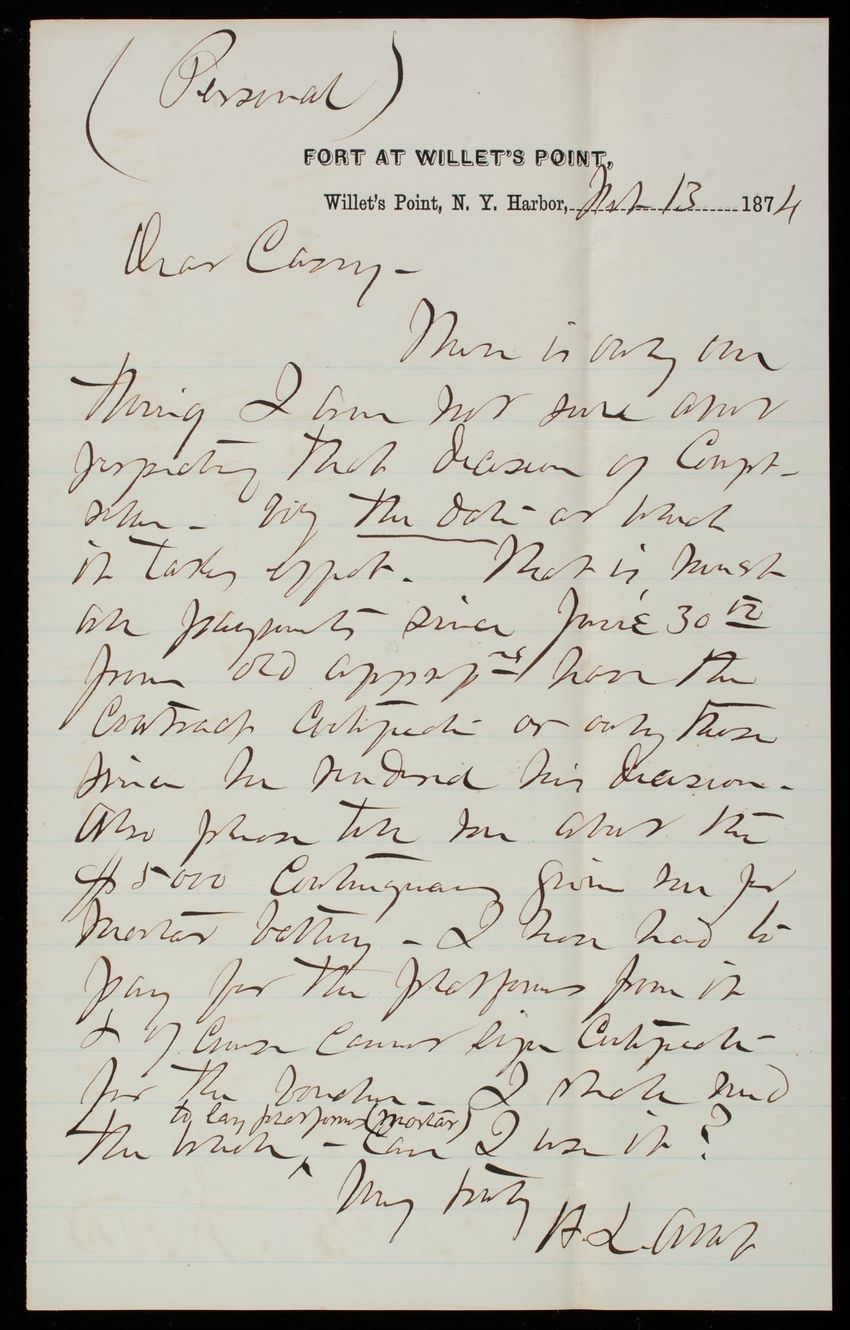 (Personal)
FORT AT WILLET'S POINT,
Willet's Point, N. Y. Harbor, 13 1874
Dear Casey -
There is only one
thing I am not sure about
respecting that decision of Compt-
roller - viz the date at which
it takes effect. That is must
all payments since June 30th
from old approp ns have the
contract certificate or only those
since he rendered his decision.
Also please tell me about the
$5000 Contingency given me for
mortar battery - I have had to
pay for the platforms from it
& of course cannot sign certificate
for the voucher - I shall need
to lay platforms (mortar)
the whole ^ - Can I use it?
Very truly
H. L. Abbot